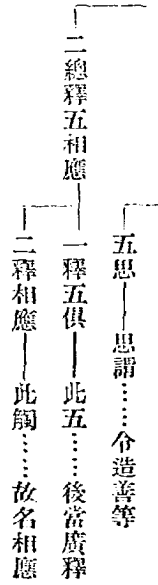 五思——思謂……令造善等
二總釋五相應
一釋五俱——此五……後當廣釋
二釋相應——此觸……故名相應